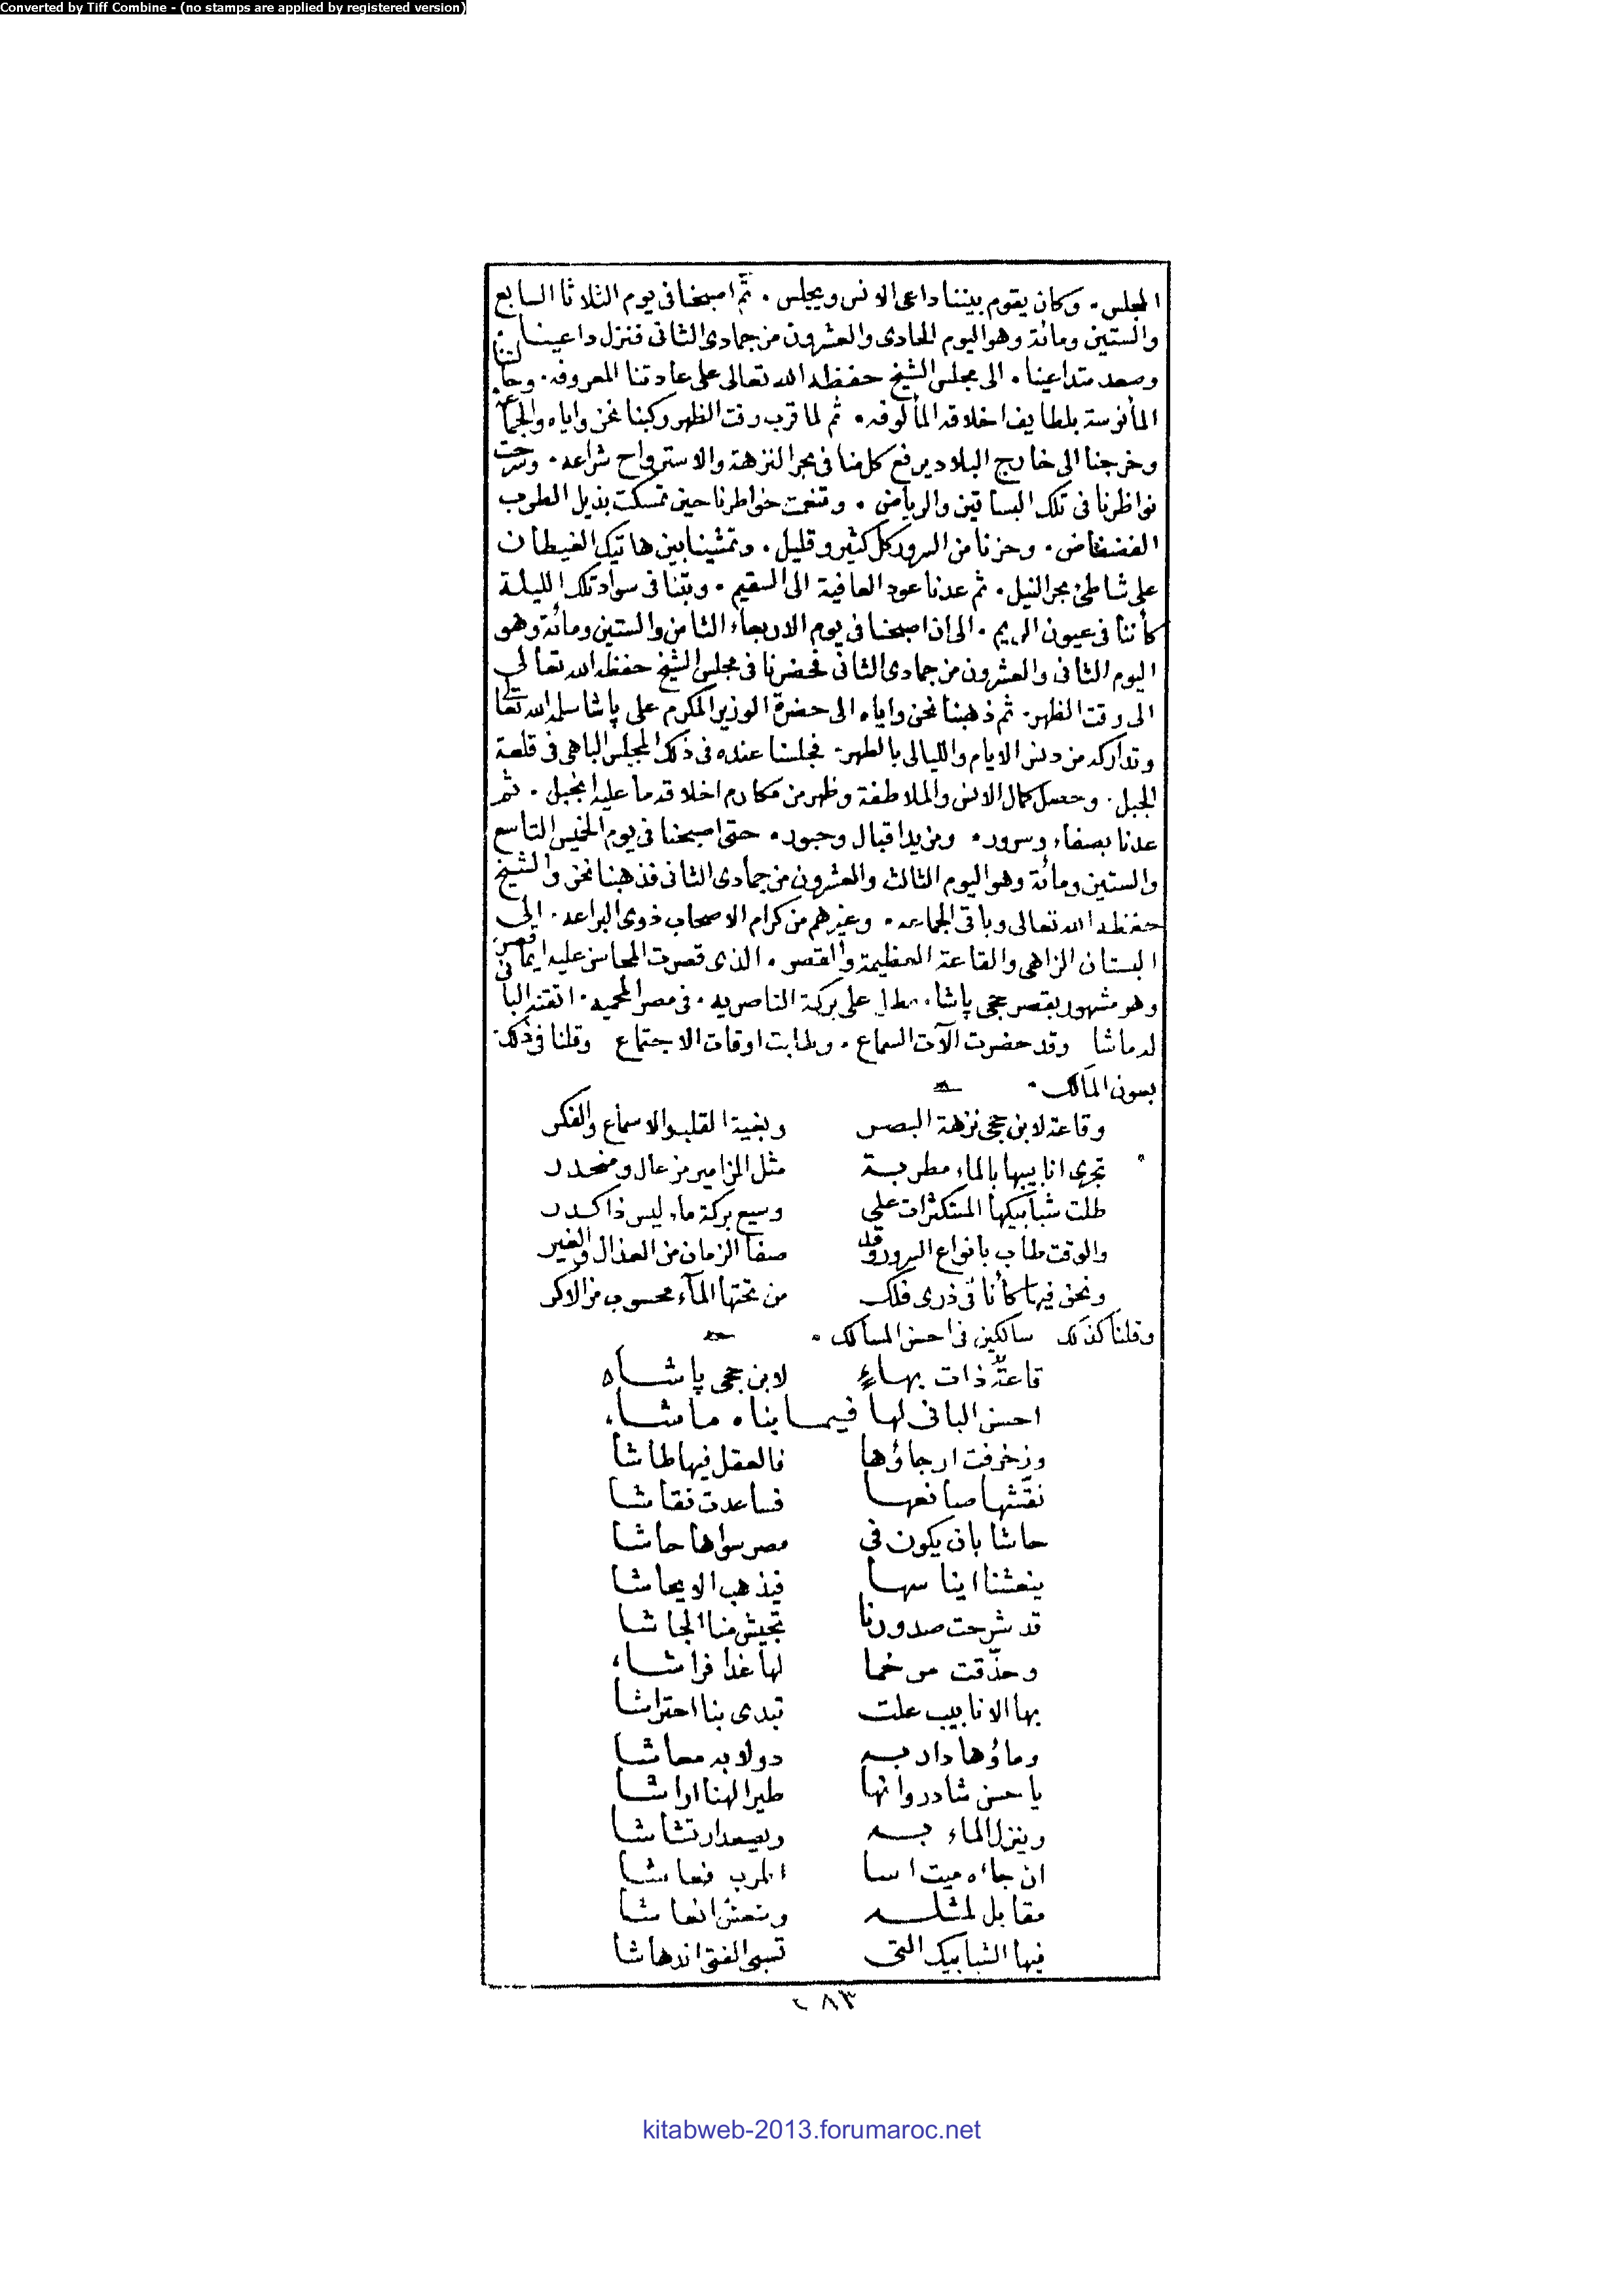 Converted by Tiff Combine - (no stamps are applied by registered version)
المجلس . وكان يقوم بيننا داعى الانس ويجلس . ثم اصبحنا فى يوم الثلاثا السابع
والستين ومائة وهو اليوم الحادى والعشرون من جمادى الثانى فنزل داعينا
وصعد متداعينا . الى مجلس الشيخ حفظه الله تعالى على عادتنا المعروفه . وجالتنا
المأنوسة بلطايف اخلاقه المألوفه . ثم لما قرب وقت الظهر ركبنا نحن واياه والجماعة
وخرجنا الى خارج البلاد يرفع كل منا فى بحر النزهة والاسترواح شراعه . وسرحت
نواظرنا فى تلك البساتين والرياض . وتنعمت خواطرنا حين تمسكت بذيل الطرب
الفضفاض . وحزنا من السرور كل كثير وقليل . وتمشينا بين هاتيك الغيطان
على شاطئ بحر النيل . ثم عدنا عود العافية الى السقيم . وبتنا فى سواد تلك الليلة
كأننا فى عيون الريم . الى ان اصبحنا فى يوم الاربعاء الثامن والستين ومائة وهو
اليوم الثانى والعشرون من جمادى الثانى فحضرنا فى مجلس الشيخ حفظه الله تعالى
الى وقت الظهر . ثم ذهبنا نحن واياه الى حضرة الوزير المكرم على پاشا سلمه الله تعالى
وتداركه من دنس الايام والليالى بالطهر . فجلسنا عنده فى ذلك المجلس الباهى فى قلعة
الجبل . وحصل كمال الانس والملاطفة وظهر من مكارم اخلاقه ما عليه انجبل . ثم
عدنا بصفاء وسرور . ومزيد اقبال وحبور . حتى اصبحنا فى يوم الخميس التاسع
والستين ومائة وهو اليوم الثالث والعشرون من جمادى الثانى فذهبنا نحن والشيخ
حفظه الله تعالى وباقى الجماعه . وغيرهم من كرام الاصحاب ذوى البراعه . الى
البستان الزاهى والقاعة العظيمة والقصر . الذى قصرت المحاسن عليه ايما قصر
وهو مشهور بقصر حجى پاشا . مطل على بركة الناصريه . فى مصر المحميه . اتقنه البانى
له ماشا وقد حضرت آلآت السماع . وطابت اوقات الاجتماع وقلنا فى ذلك
بعون المالك .
وقاعة لابن حجى نزهة البصر وبغية القلب والاسماع والفكر
تجرى انابيبها بالماء مطربة مثل المزامير من عال ومنحدر
طلت شبابيكها المستكثرات على وسيع بركة ماء ليس ذا كدر
والوقت طاب بانواع السرور وقد صفا الزمان من العذال والغير
ونحن فيها كأنا فى ذرى فلك من تحتها المآء محسوب من الاكر
وقلنا كذلك سالكين فى احسن المسالك .
قاعة ذات بهاء لابن حجى پاشاه
احسن البانى لها فيما بناه ماشاء
وزخرفت ارجاؤها فالعقل فيها طاشا
نقشها صانعها فساعدت نقاشا
حاشا بان يكون فى مصر سواها حاشا
ينعشنا ايناسها فيذهب الايحاشا
قد شرحت صدورنا تجيش منا الجاشا
لها غدا فراشا،
بها الانابيب علت تبدى بنا احتراشا
وماؤها دار به دولابه معاشا
يا حسن شادروانها طير الهنا اراشا
وينزل الماء به ويصعد ارتشاشا
ان جاءه ميت اسا فعاشا
مقابل لمثله وينعش انعاشا
فيها الشبابيك التى تسبى الفتى اندهاشا
٢٨٣
kitabweb-2013.forumaroc.net